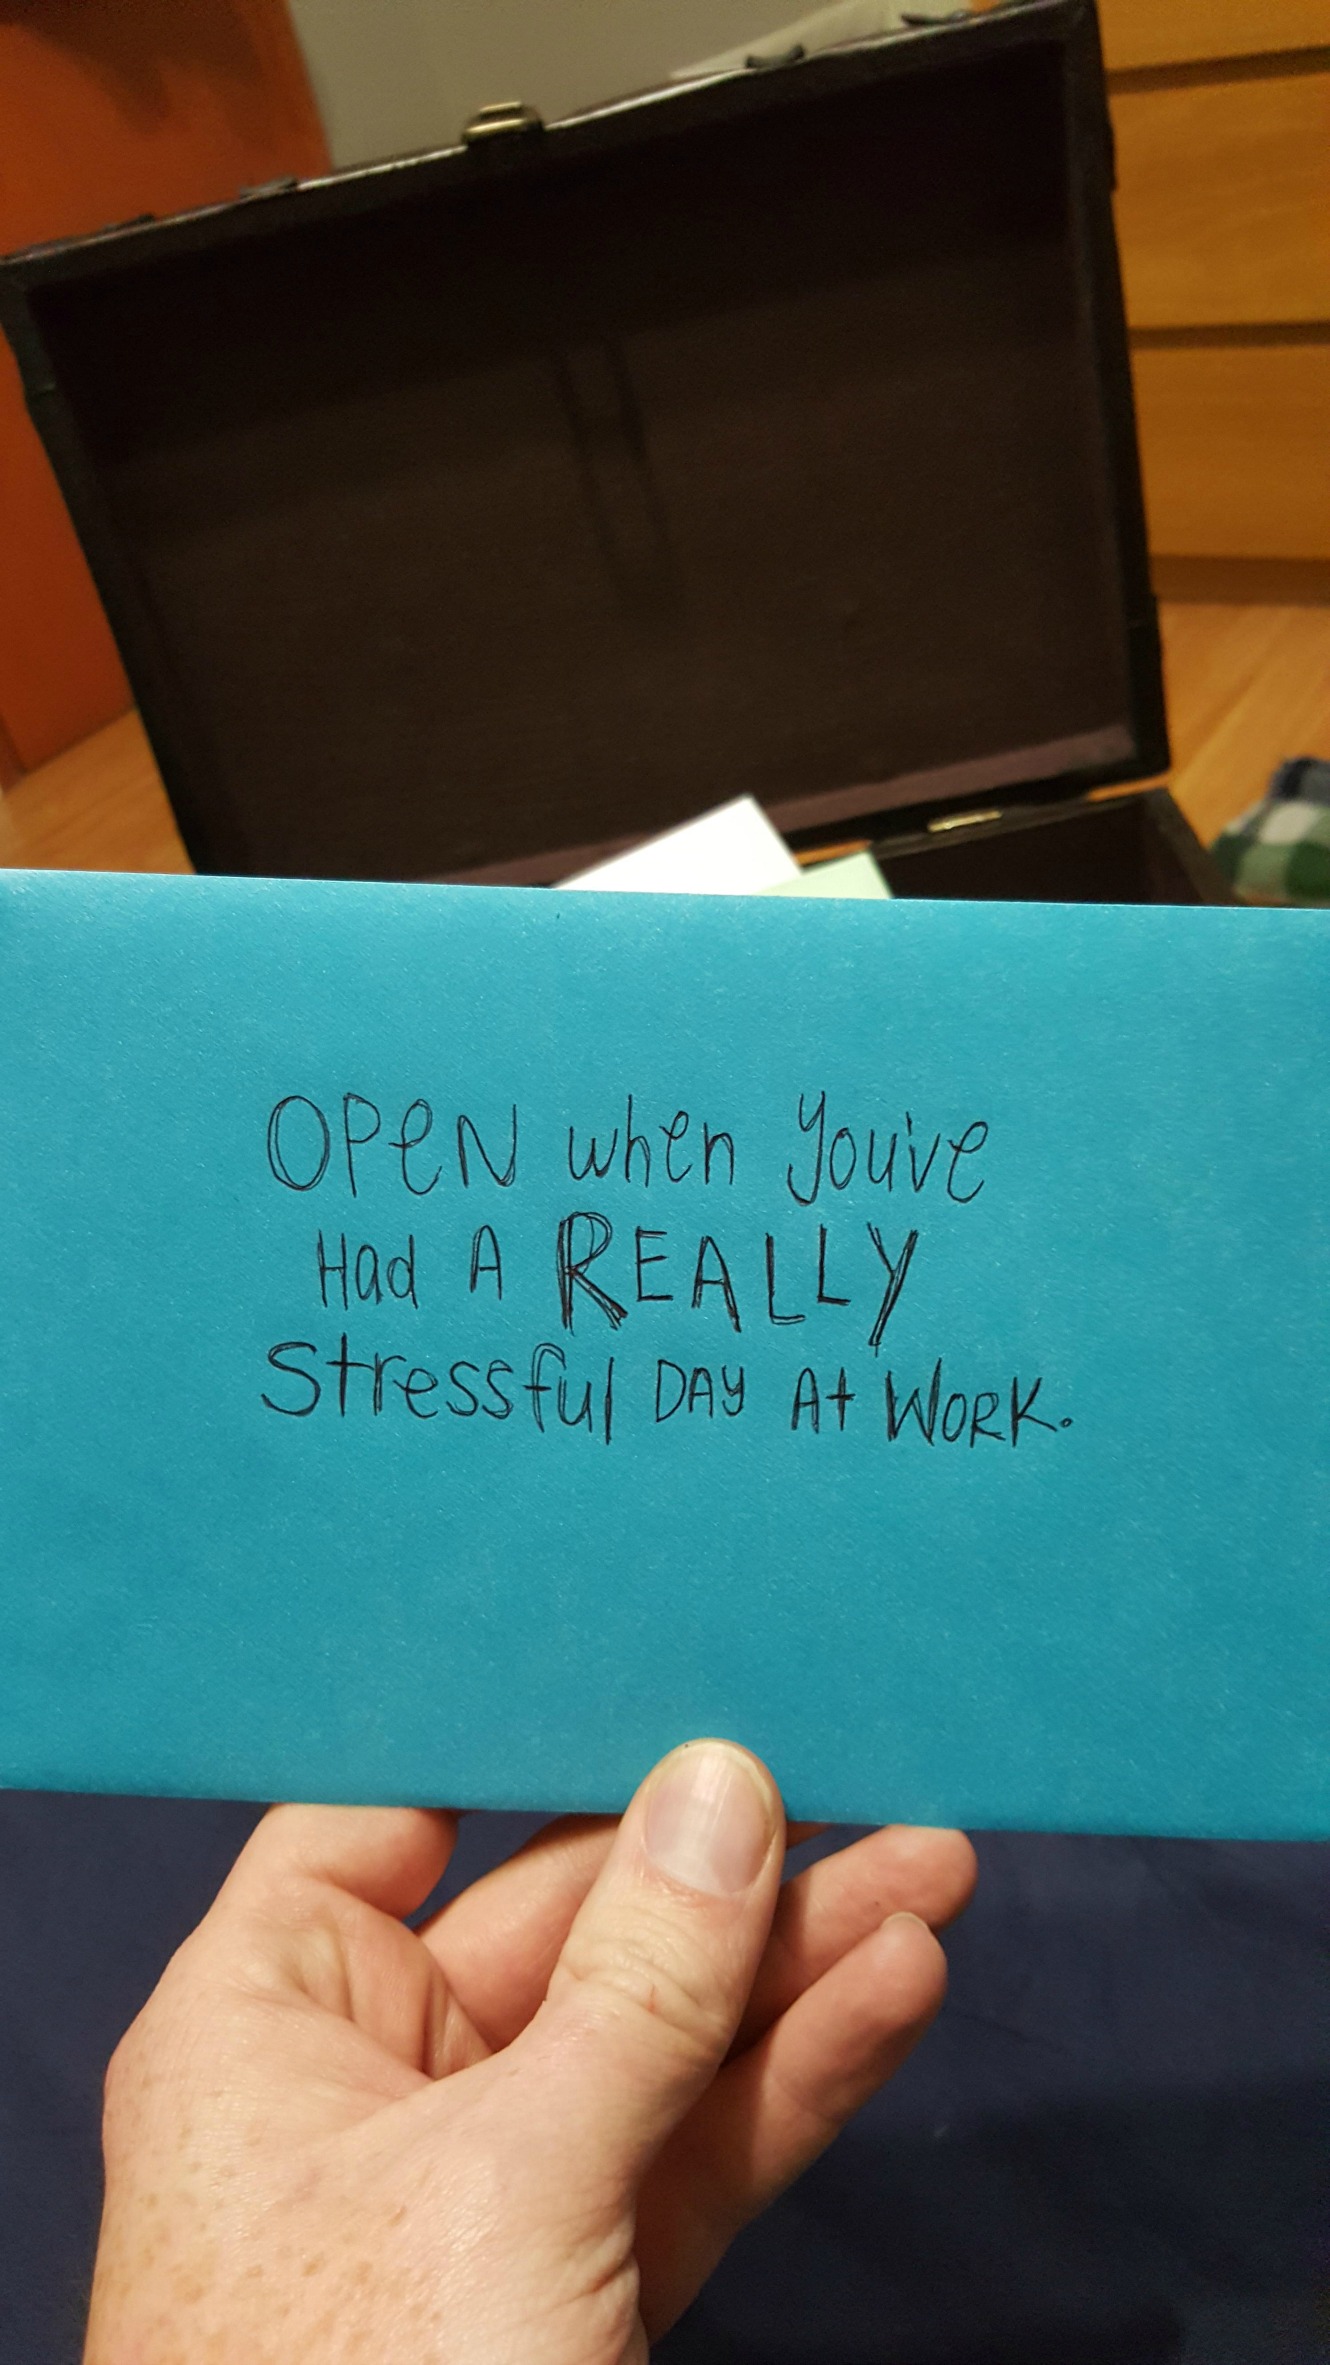 OPeN when you've
Had A REALLY
Stressful DAY At WORK.